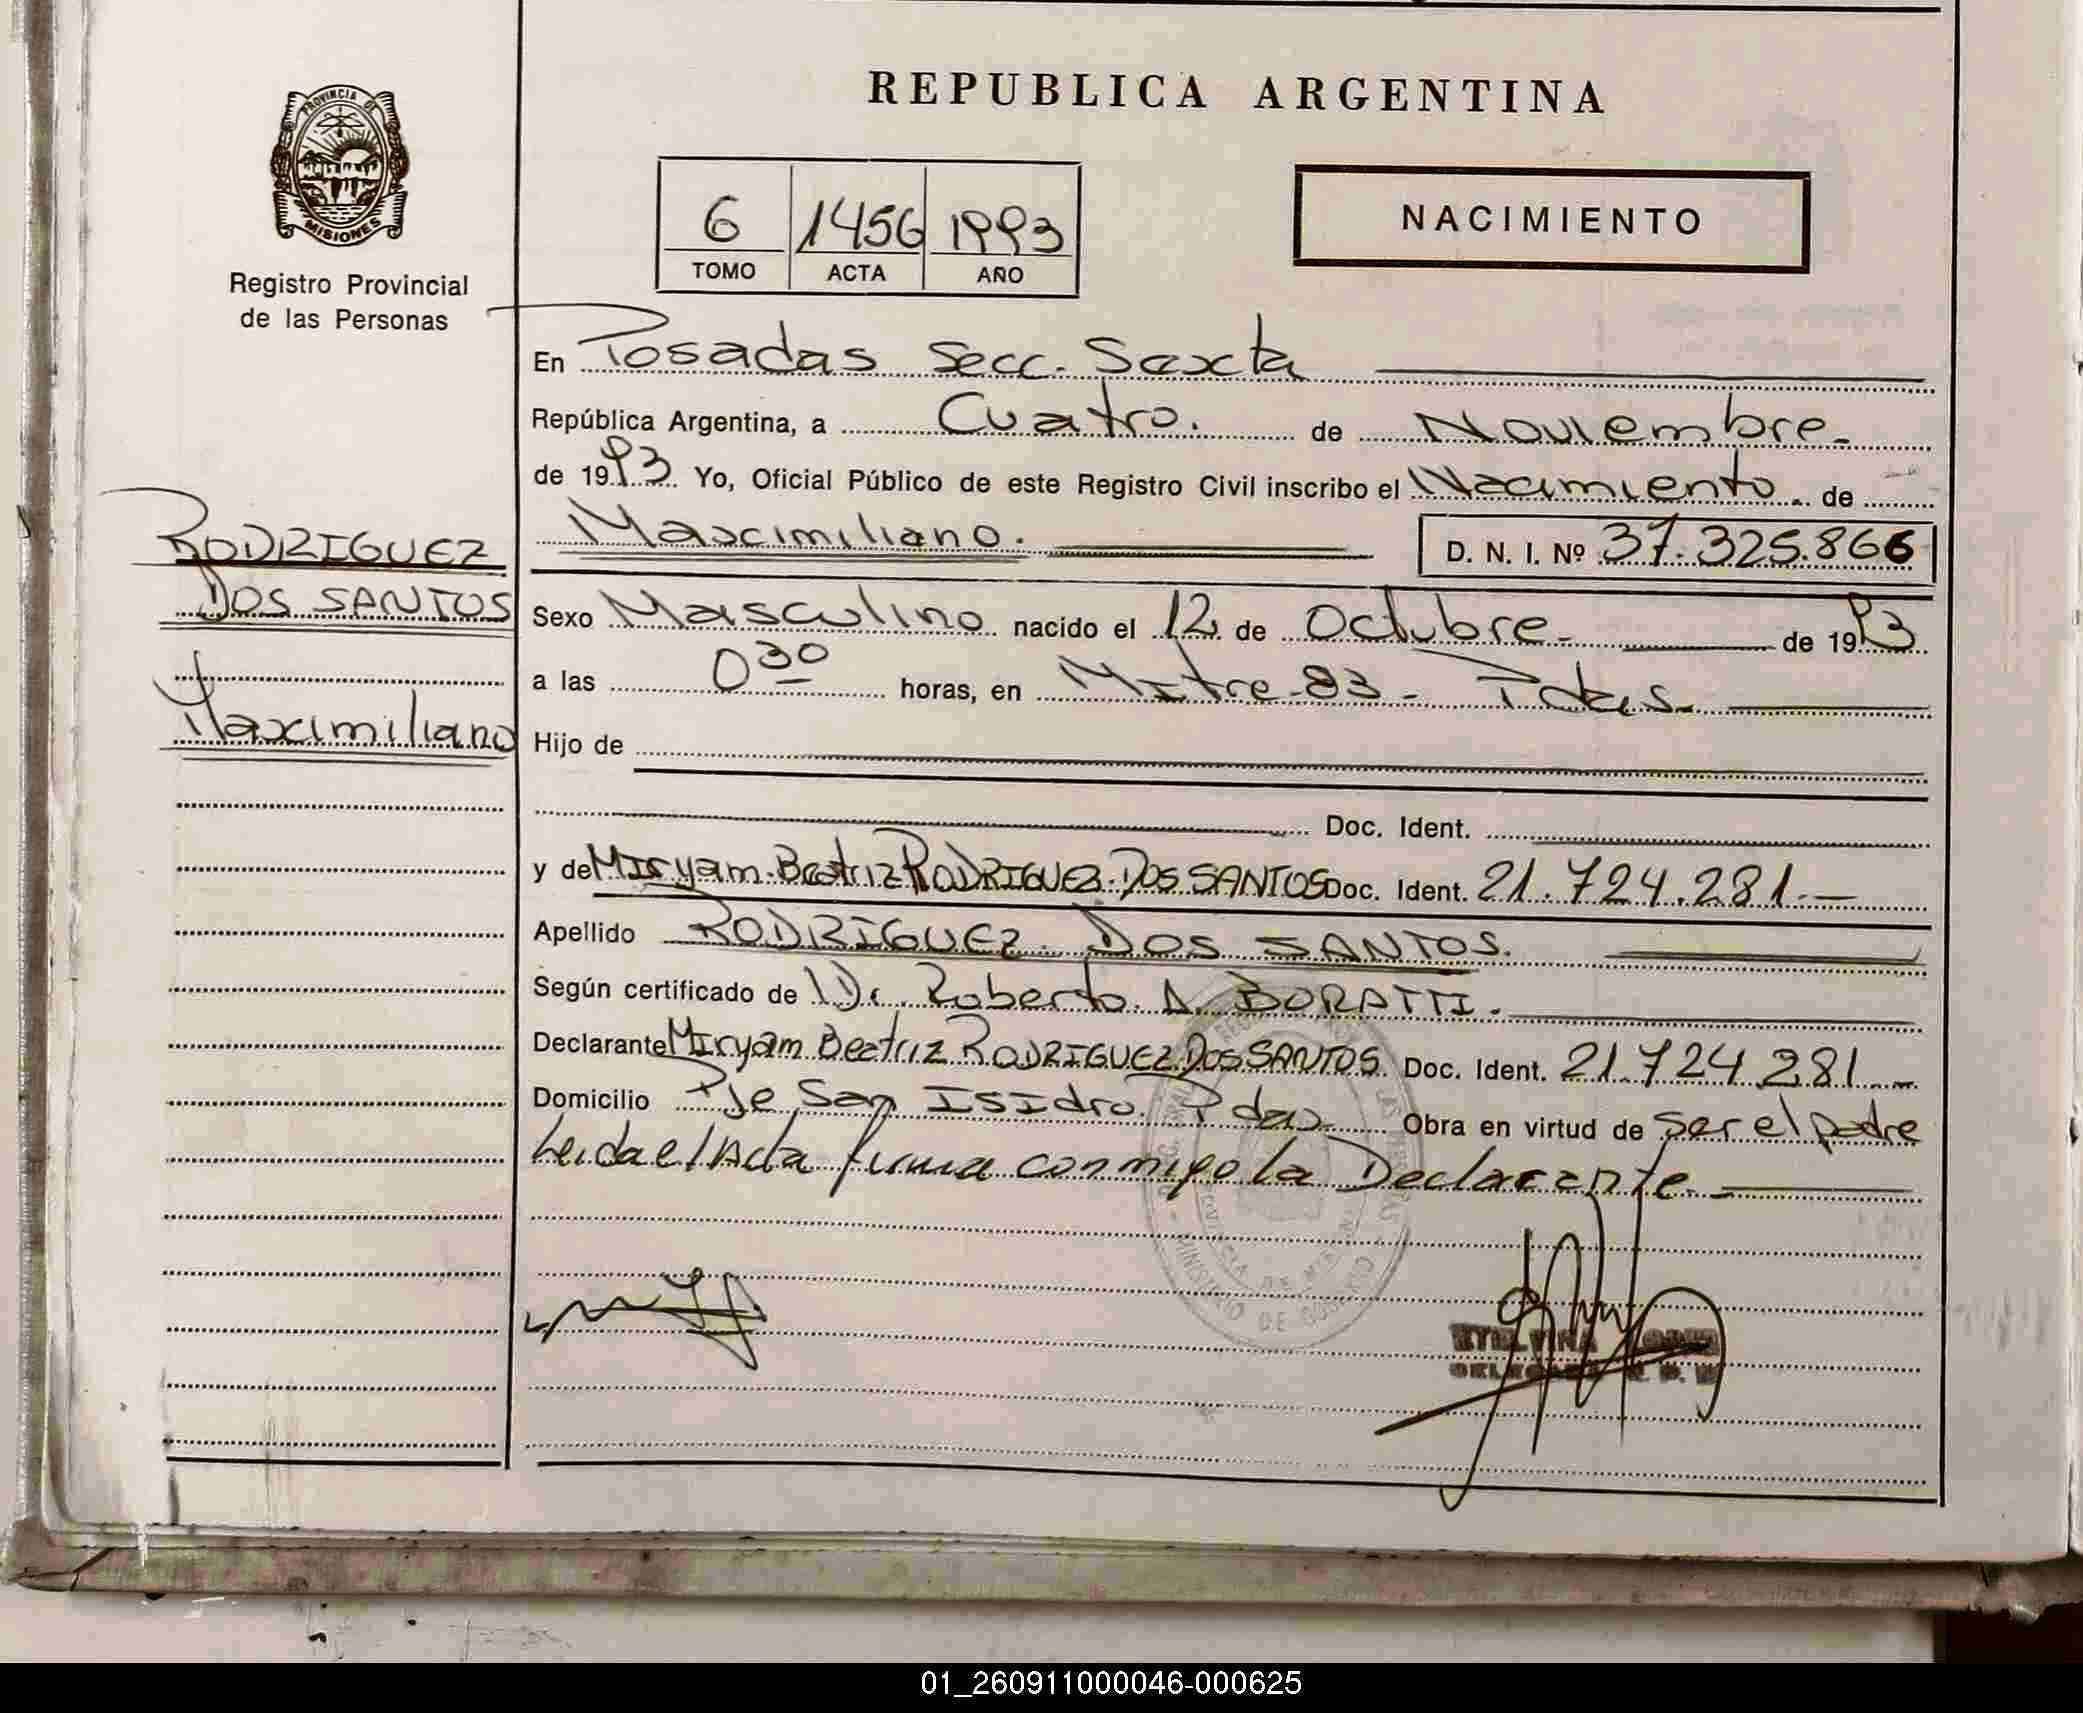 REPUBLICA ARGENTINA
PROVINCIA DE
MISIONES
Registro Provincial
de las Personas
6 1456 1993
TOMO ACTA AÑO
NACIMIENTO
En Posadas Secc. Sexta
República Argentina, a Cuatro. de Noviembre.
de 1993. Yo, Oficial Público de este Registro Civil inscribo el Nacimiento. de
Maximiliano. D. N. I. Nº 37.325.866
RODRIGUEZ
DOS SANTOS
Maximiliano
Sexo Masculino nacido el 12 de Octubre. de 1993
a las 0 30 horas, en Mitre 83 - Pdas.
Hijo de
Doc. Ident.
y de Miryam Beatriz RODRIGUEZ DOS SANTOS Doc. Ident. 21.724.281.-
Apellido RODRIGUEZ DOS SANTOS.
Según certificado de Dr. Roberto A. BORATTI.
Declarante Miryam Beatriz RODRIGUEZ DOS SANTOS Doc. Ident. 21.724.281.-
Domicilio Pje San Isidro. Pdas Obra en virtud de ser el padre
Leida el Acta firma conmigo la Declarante.
MINISTERIO DE GOBIERNO
ETELVINA
01_260911000046-000625